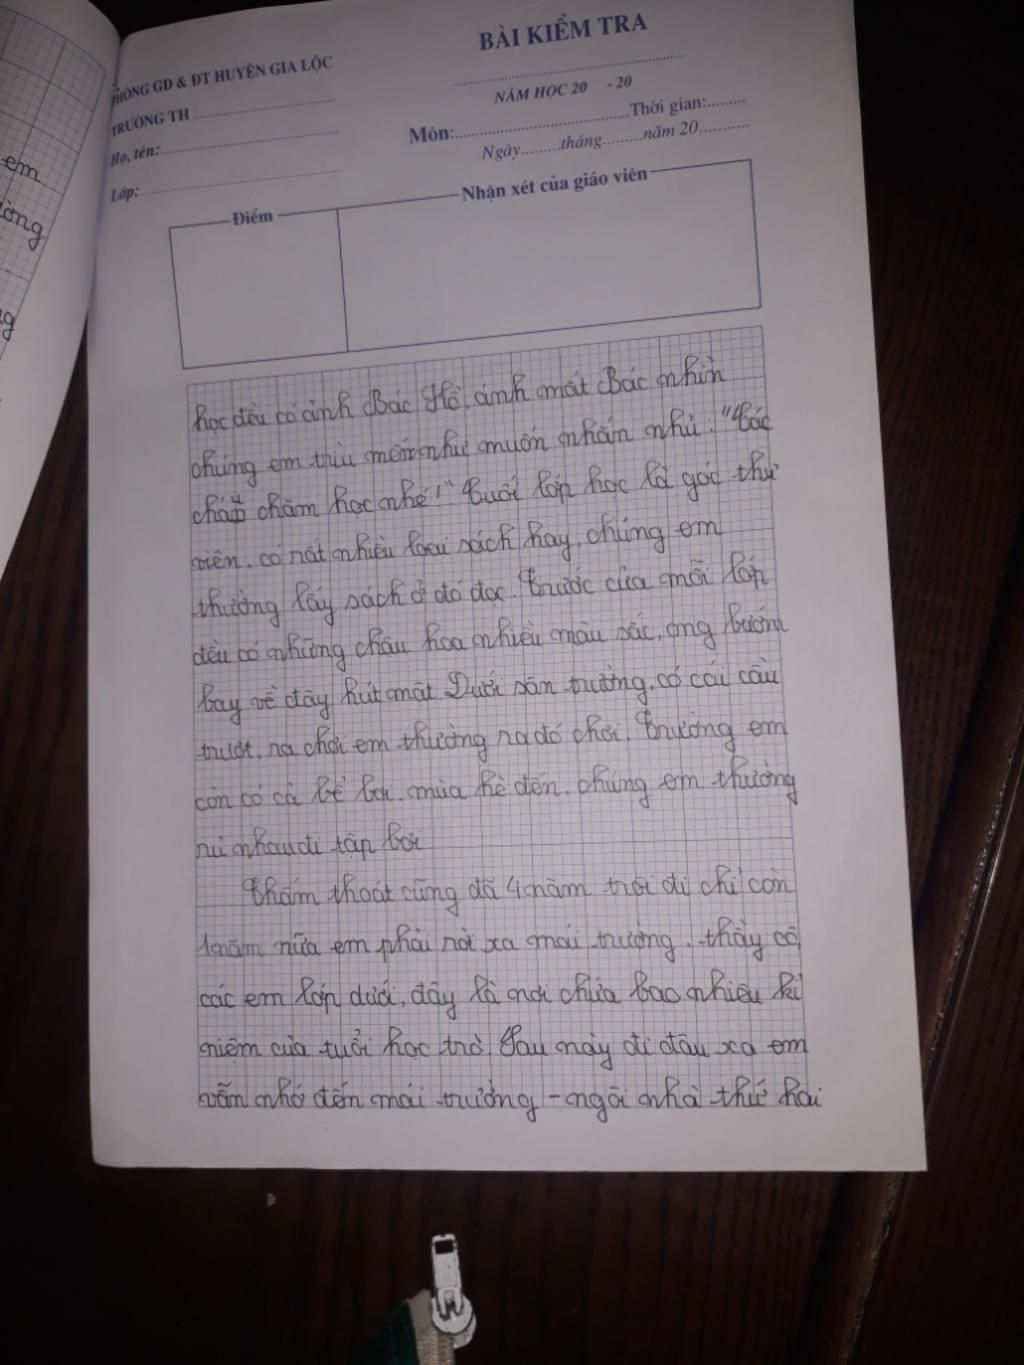 em
ường
ng
PHÒNG GD & ĐT HUYỆN GIA LỘC
TRƯỜNG TH
Họ, tên:
Lớp:
BÀI KIỂM TRA
NĂM HỌC 20 - 20
Môn: Thời gian:
Ngày tháng năm 20
Điểm
Nhận xét của giáo viên
học đều có ảnh Bác Hồ, ánh mắt Bác nhìn
chúng em trìu mến như muốn nhắn nhủ: "Các
cháu chăm học nhé!" Cuối lớp học là góc thư
viện, có rất nhiều loại sách hay, chúng em
thường lấy sách ở đó đọc. Trước cửa mỗi lớp
đều có những chậu hoa nhiều màu sắc, ong bướm
bay về đây hút mật. Dưới sân trường, có cái cầu
trượt, ra chơi em thường ra đó chơi. Trường em
còn có cả bể bơi, mùa hè đến, chúng em thường
rủ nhau đi tập bơi
Thấm thoát cũng đã 4 năm trôi đi chỉ còn
1 năm nữa em phải rời xa mái trường, thầy cô
các em lớp dưới, đây là nơi chứa bao nhiêu kỉ
niệm của tuổi học trò. Sau này đi đâu xa em
vẫn nhớ đến mái trường - ngôi nhà thứ hai